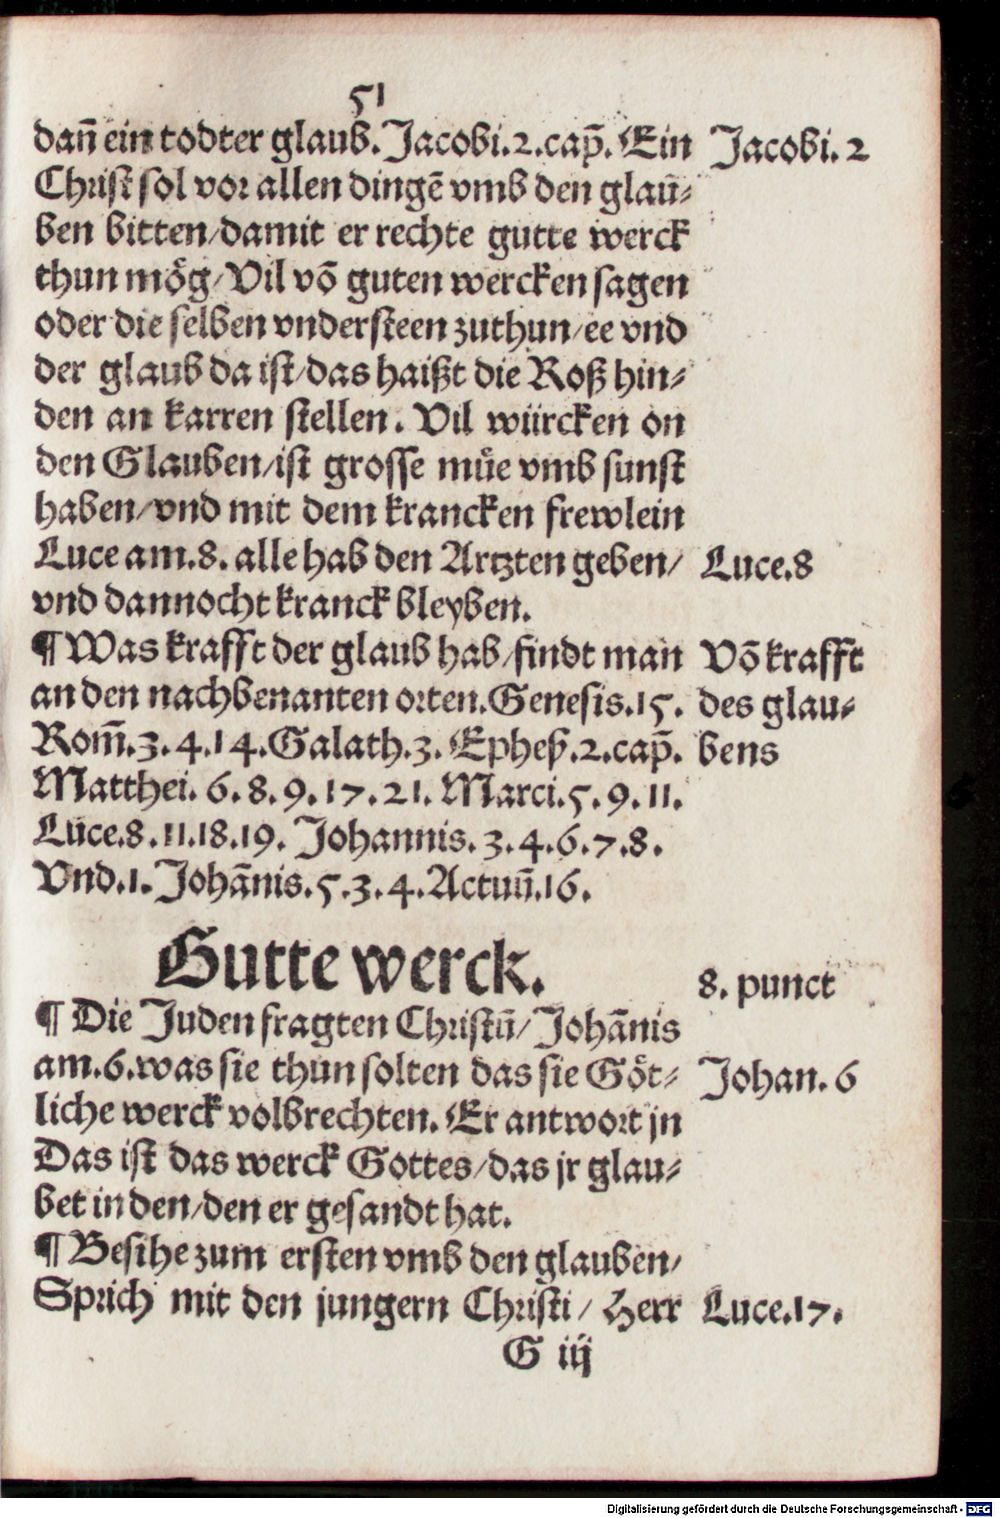 51
dañ ein todter glaub. Jacobi.2.cap̃. Ein Jacobi. 2
Christ sol vor allen dingẽ vmb den glaũ⸗
ben bitten/damit er rechte gutte werck
thun mög/Vil võ guten wercken sagen
oder die selben vndersteen zuthun/ee vnd
der glaub da ist/das haißt die Roß hin⸗
den an karren stellen. Vil würcken on
den Glauben/ist grosse müe vmb sunst
haben/vnd mit dem krancken frewlein
Luce am.8. alle hab den Artzten geben/ Luce.8
vnd dannocht kranck bleyben.
¶ Was krafft der glaub hab/findt man Võ krafft
an den nachbenanten orten.Genesis.15. des glau⸗
Rom̃.3.4.14.Galath.3. Epheß.2.cap̃. bens
Matthei. 6.8.9.17.21. Marci.5.9.11.
Luce.8.11.18.19. Johannis. 3.4.6.7.8.
Vnd.1.Johãnis.5.3.4.Actuũ.16.
Gutte werck.
8. punct
¶ Die Juden fragten Christũ/Johãnis
am.6.was sie thun solten das sie Göt⸗ Johan. 6
liche werck volbrechten. Er antwort jn
Das ist das werck Gottes/das jr glau⸗
bet in den/den er gesandt hat.
¶ Besihe zum ersten vmb den glauben/
Sprich mit den jungern Christi/ Herr Luce.17.
G iij
Digitalisierung gefördert durch die Deutsche Forschungsgemeinschaft - DFG